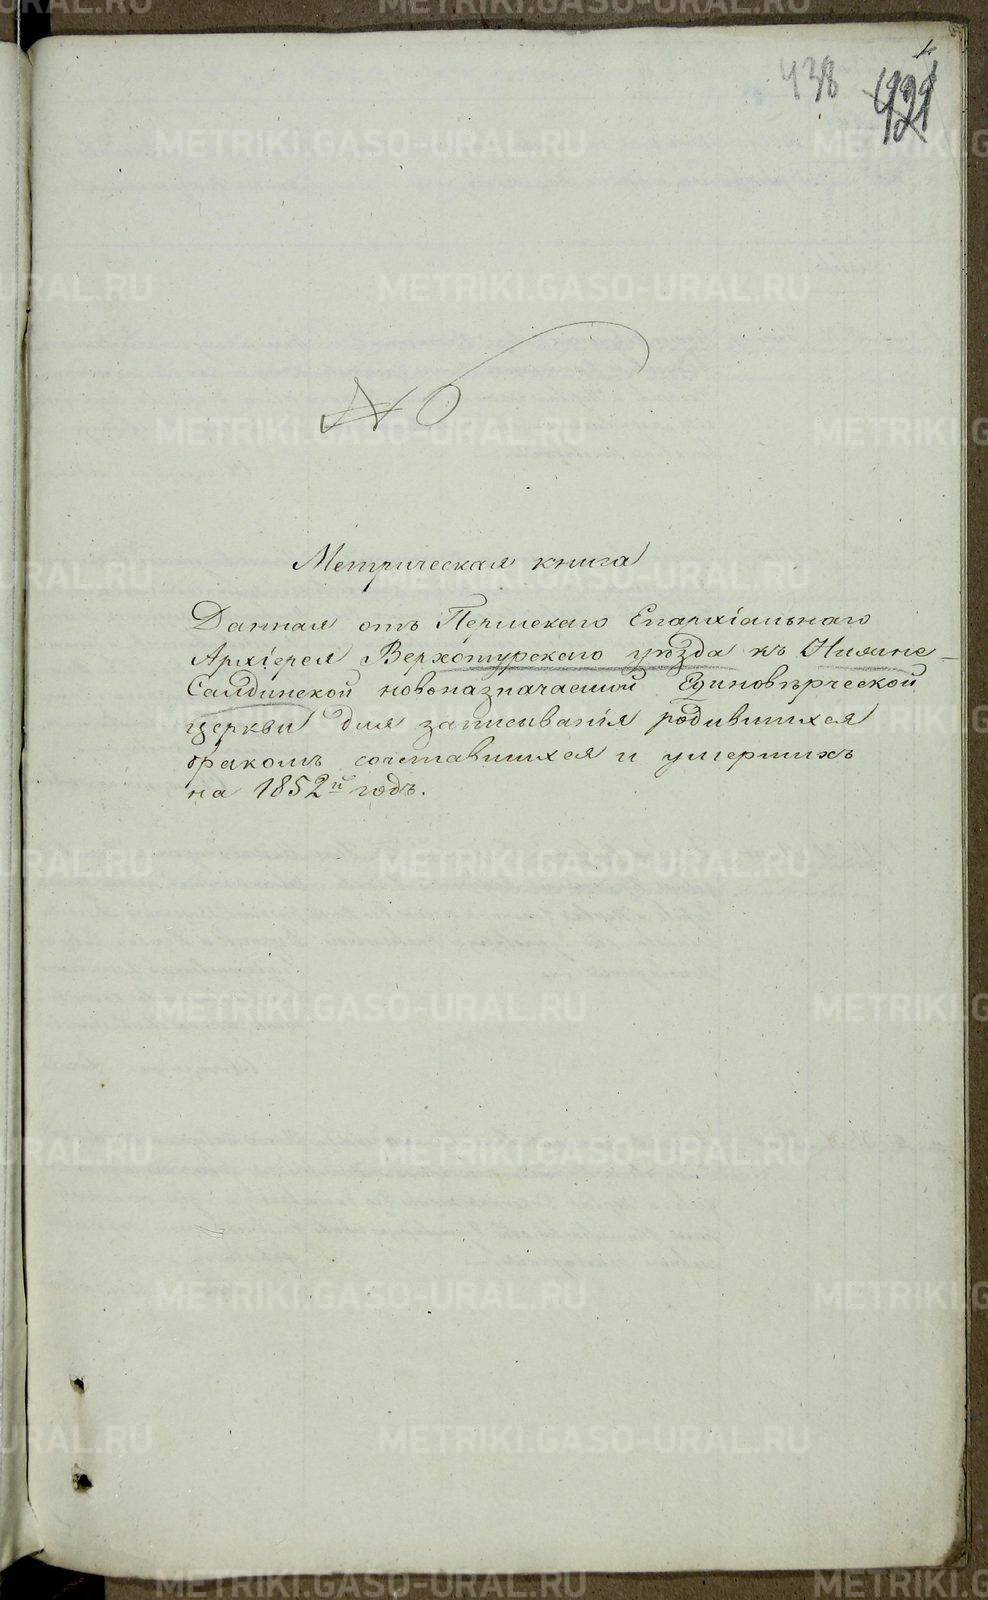 438
№ 6
Метрическая книга
Данная отъ Пермскаго Епархіальнаго
Архіерея Верхотурскаго уѣзда къ Нижне-
Салдинской новоназначаемой Единовѣрческой
церкви для записыванія родившихся
бракомъ сочетавшихся и умершихъ
на 1852й годъ.
METRIKI.GASO-URAL.RU